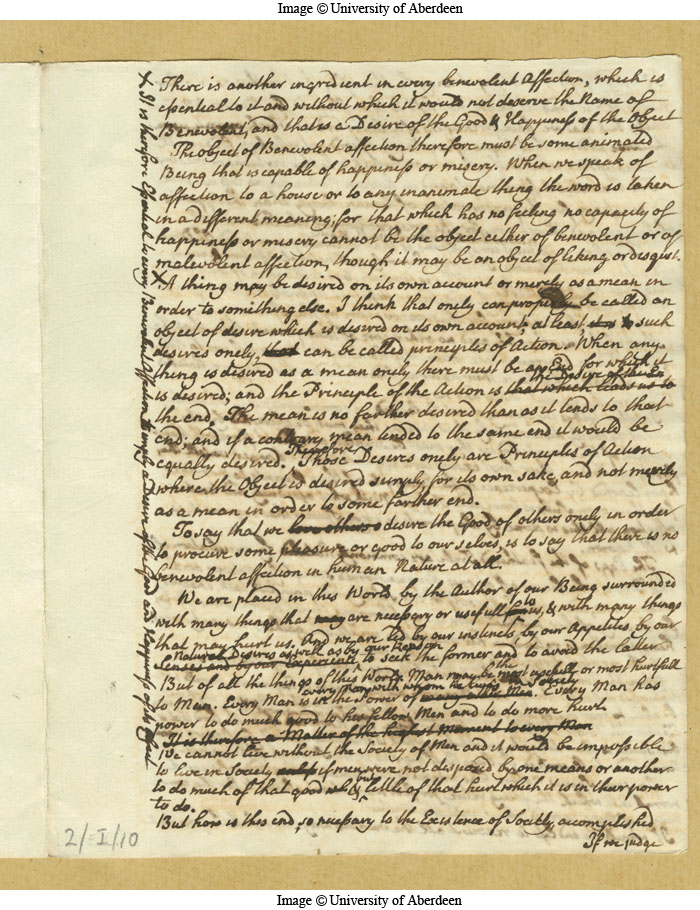 Image © University of Aberdeen
There is another ingredient in every benevolent Affection, which is
essential to it and without which it would not deserve the Name of
Benevolent, and that is a Desire of the Good & Happiness of the Object
The object of Benevolent affection therefore must be some animated
Being that is capable of happiness or misery. When we speak of
affection to a house or to any inanimate thing the word is taken
in a different meaning; for that which has no feeling no capacity of
happiness or misery cannot be the object either of benevolent or of
malevolent affection, though it may be an object of liking or disgust.
X A thing may be desired on its own account or merely as a mean in
order to something else. I think that onely can properly be called an
object of desire which is desired on its own account; at least such
desires onely, that can be called principles of Action. When any
thing is desired as a mean onely there must be an End for which it
is desired; and the Principle of the Action is that which leads us to
the Desire of the End
the end. The mean is no farther desired than as it tends to that
end: and if a contrary mean tended to the same end it would be
equally desired. Therefore Those Desires onely are Principles of Action
where the Object is desired simply for its own sake, and not merely
as a mean in order to some farther end.
To say that we love others desire the Good of others onely in order
to procure some pleasure or good to our selves, is to say that there is no
benevolent affection in human Nature at all.
We are placed in this World by the Author of our Being surrounded
with many things that may are necessary or usefull to us, & with many things
that may hurt us. And we are led by our instincts, by our Appetites by our
Natural Desires as well as by our Reason
Senses and by our Experience, to seek the former and to avoid the latter
But of all the things of this World Man may be the most usefull or most hurtfull
to Man. Every Man is in the Power of every Man with whom he lives in Society
Every Man has
power to do much good to his fellow Men and to do more hurt.
It is therefore a Matter of the highest moment to every Man
We cannot live without the Society of Men and it would be impossible
to live in Society unless if men were not disposed by one means or another
to do much of that good & but little of that hurt which it is in their power
to do.
But how is this end, so necessary to the Existence of Society, accomplished
If we judge
X It is therefore Essential to every Benevolent Affection to imply a Desire of the Good and Happiness of its Object
2/I/10
Image © University of Aberdeen